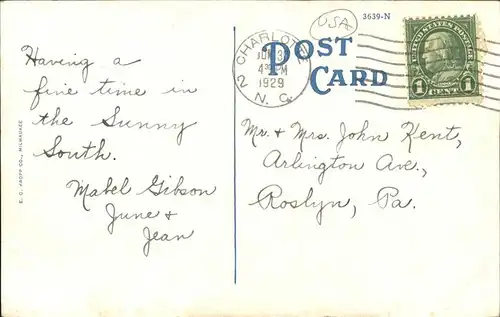 3639-N
USA
POST
CARD
CHARLOTTE
JUN 3
4 30 PM
1929
2 N. C.
UNITED STATES POSTAGE
1 CENT 1
Having a
fine time in
the Sunny
South.
Mabel Gibson
June &
Jean
Mr. & Mrs. John Kent,
Arlington Ave.,
Roslyn, Pa.
E. C. KROPP CO., MILWAUKEE